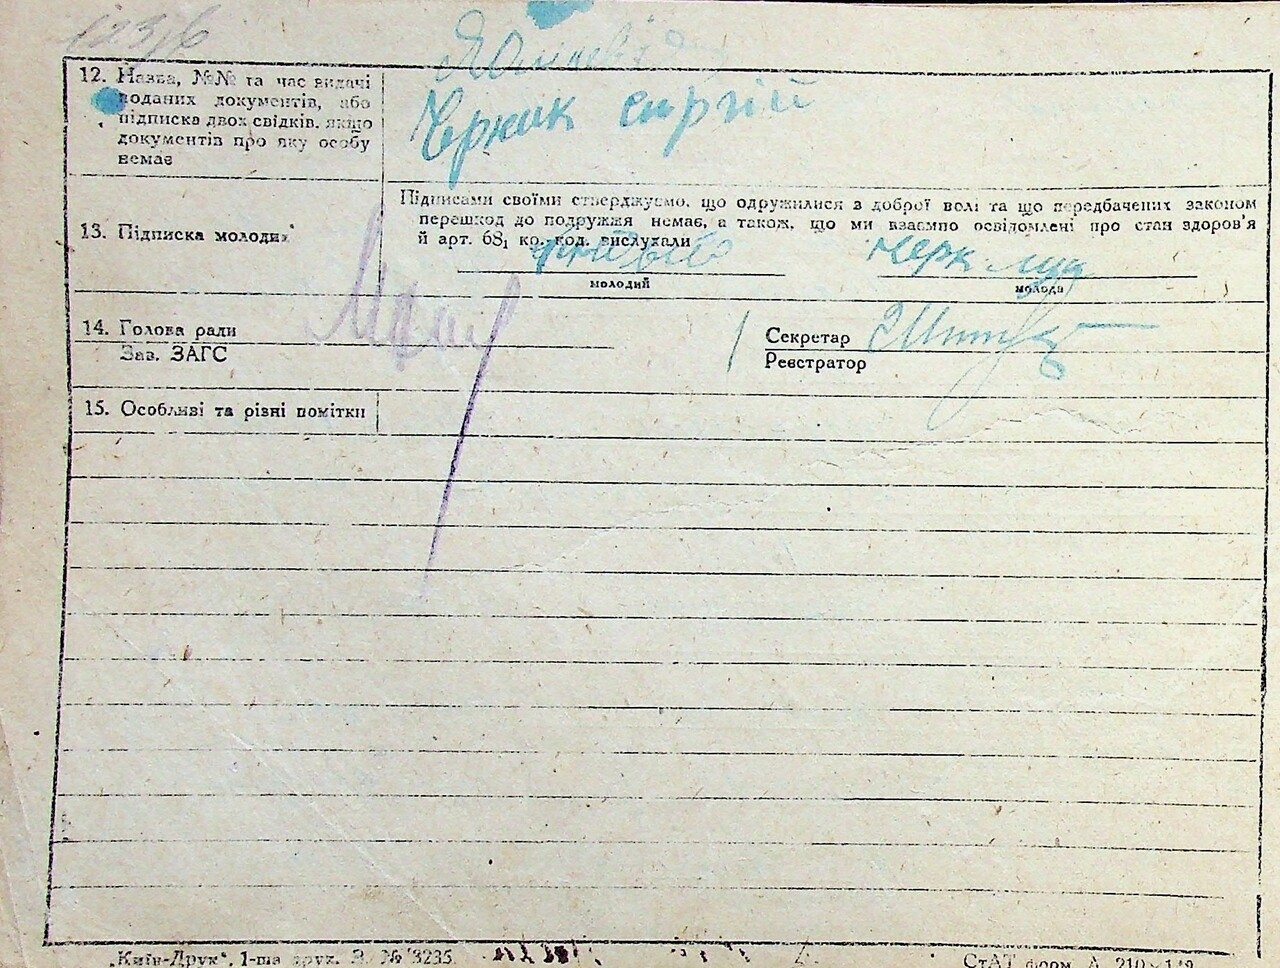 123/6
12. Назва, №№ та час видачі
поданих документів, або
підписка двох свідків, якщо
документів про яку особу
немає
Черняк сиргій
Підписами своїми стверджуємо, що одружилися з доброї волі та що передбачених законом
перешкод до подружжя немає, а також, що ми взаємно освідомлені про стан здоров'я
й арт. 68₁ кр. код. вислухали
13. Підписка молодих
молодий
молода
14. Голова ради
Зав. ЗАГС
Секретар
Реєстратор
15. Особливі та різні помітки
„Київ-Друк“, 1-ша друк. З. № 3235.
СтАТ форм. А